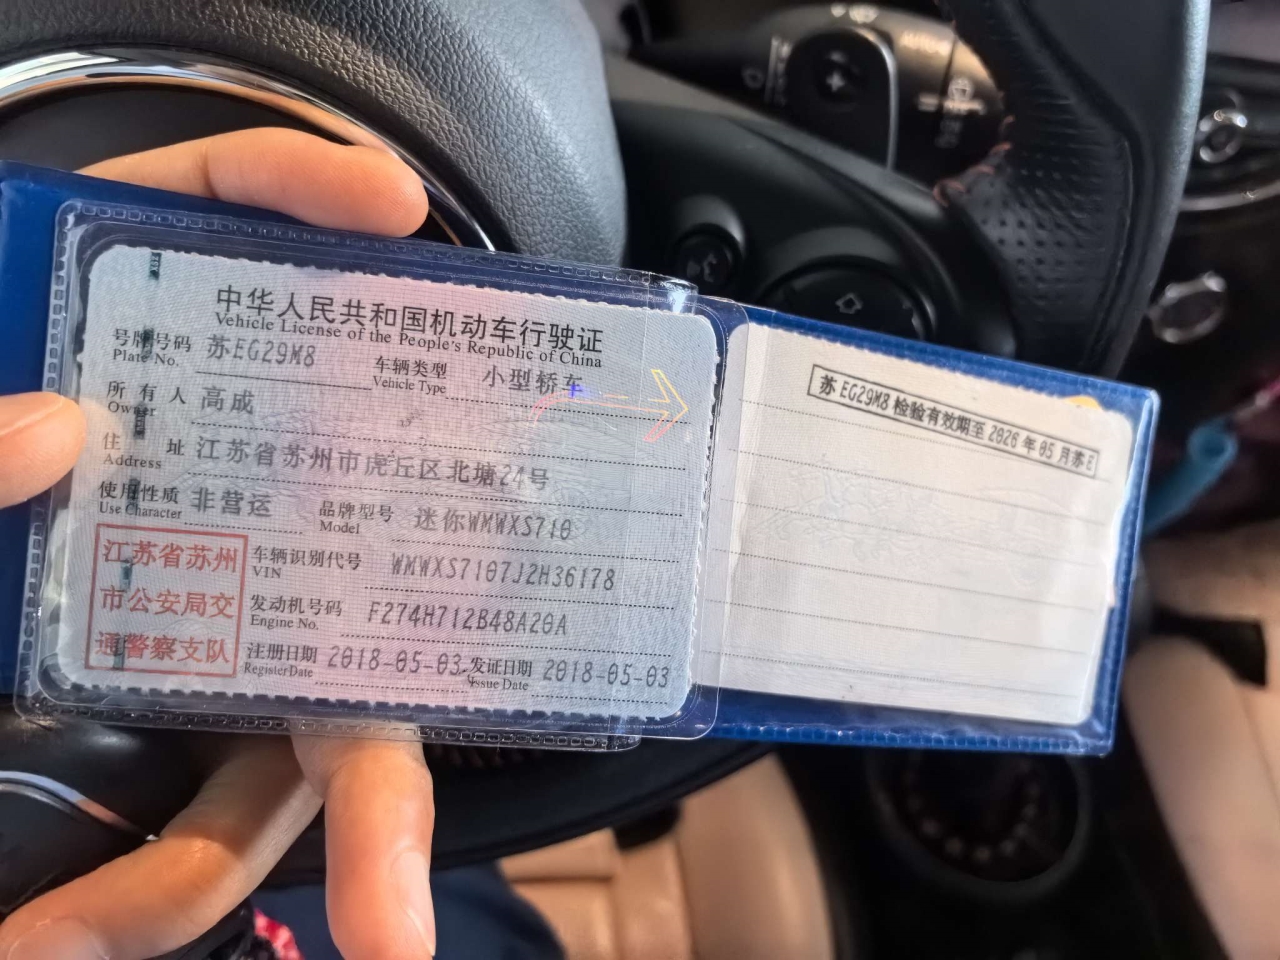 中华人民共和国机动车行驶证
Vehicle License of the People's Republic of China
号牌号码 苏EG29M8 车辆类型 小型轿车
Plate No. Vehicle Type
所有人 高成
Owner
住址 江苏省苏州市虎丘区北塘24号
Address
使用性质 非营运 品牌型号 迷你WMWXS710
Use Character Model
江苏省苏州
市公安局交
通警察支队
车辆识别代号 WMWXS7107J2H36178
VIN
发动机号码 F274H712B48A20A
Engine No.
注册日期 2018-05-03 发证日期 2018-05-03
Register Date Issue Date
苏EG29M8 检验有效期至 2026年05月苏E
AUTO